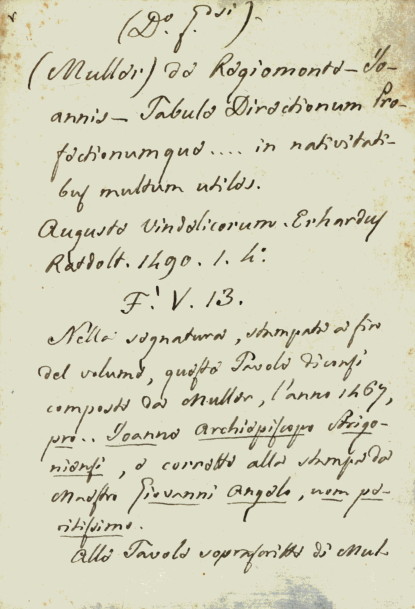 (Do. f.esi).
(Muller) de Regiomonte - Jo-
annis - Tabule Directionum Pro-
fectionumque .... in nativitati-
bus multum utiles.
Auguste Vindelicorum. Erhardus
Ratdolt. 1490. 1. 4º
F. V. 13.
Nella segnatura, stampata a fin
del volume, queste Tavole diconsi
composte da Muller, l'anno 1467,
pro .. Joanne Archiepiscopo Strigo-
niensi, e corrette alla stampa da
Maestro Giovanni Angelo, uom pe-
ritissimo.
Alle Tavole soprascritte di Mul-